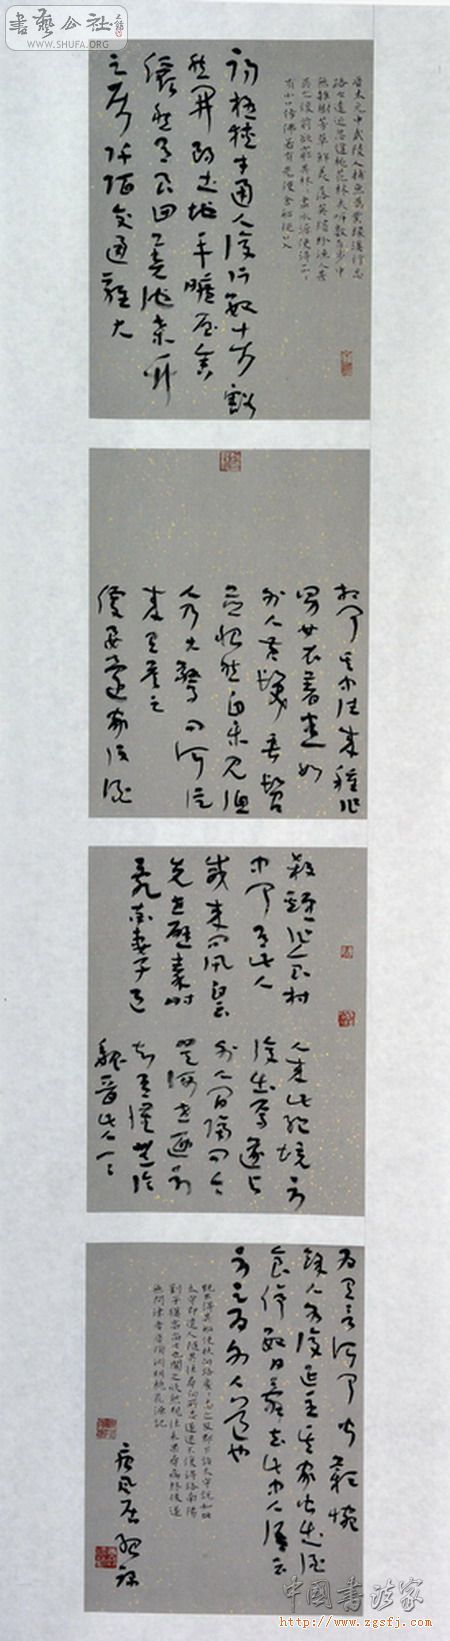 書藝公社
WWW.SHUFA.ORG
晉太元中武陵人捕魚為業緣溪行忘
路之遠近忽逢桃花林夾岸數百步中
無雜樹芳草鮮美落英繽紛漁人甚
異之復前欲窮其林林盡水源便得一山
有小口仿佛若有光便舍船從口入
初極狹才通人復行數十步豁
然開朗土地平曠屋舍
儼然有良田美池桑竹
之屬阡陌交通雞犬
相聞其中往來種作
男女衣著悉如
外人黃髮垂髫
並怡然自樂見漁
人乃大驚問所從
來具答之
便要還家設酒
殺雞作食村
中聞有此人
咸來問訊自云
先世避秦時
亂率妻子邑
人來此絕境不
復出焉遂與
外人間隔問今
是何世乃不
知有漢無論
魏晉此人一一
為具言所聞皆歎惋
餘人各復延至其家皆出酒
食停數日辭去此中人語云
不足為外人道也
既出得其船便扶向路處處志之及郡下詣太守說如此
太守即遣人隨其往尋向所志遂迷不復得路南陽
劉子驥高尚士也聞之欣然規往未果尋病終後遂
無問津者晉陶淵明桃花源記
中國書法家
http://www.zgsfj.com